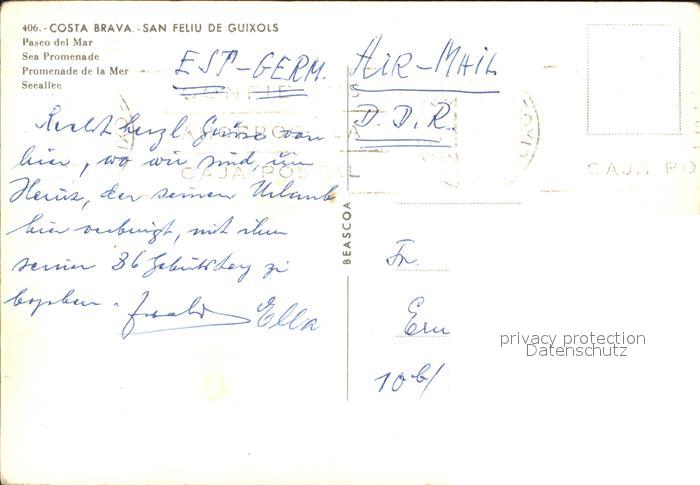 406.- COSTA BRAVA.- SAN FELIU DE GUIXOLS
Paseo del Mar
Sea Promenade
Promenade de la Mer
Seeallee
EST-GERM. AIR-MAIL
D. D. R.
CAJA POSTAL
CAJA PO
Recht herzl. Grüße von
hier, wo wir sind, um
Heinz, der seinen Urlaub
hier verbringt, mit ihm
seinen 36 Geburtstag zu
Ella
BEASCOA
Fr.
10b/
privacy protection
Datenschutz